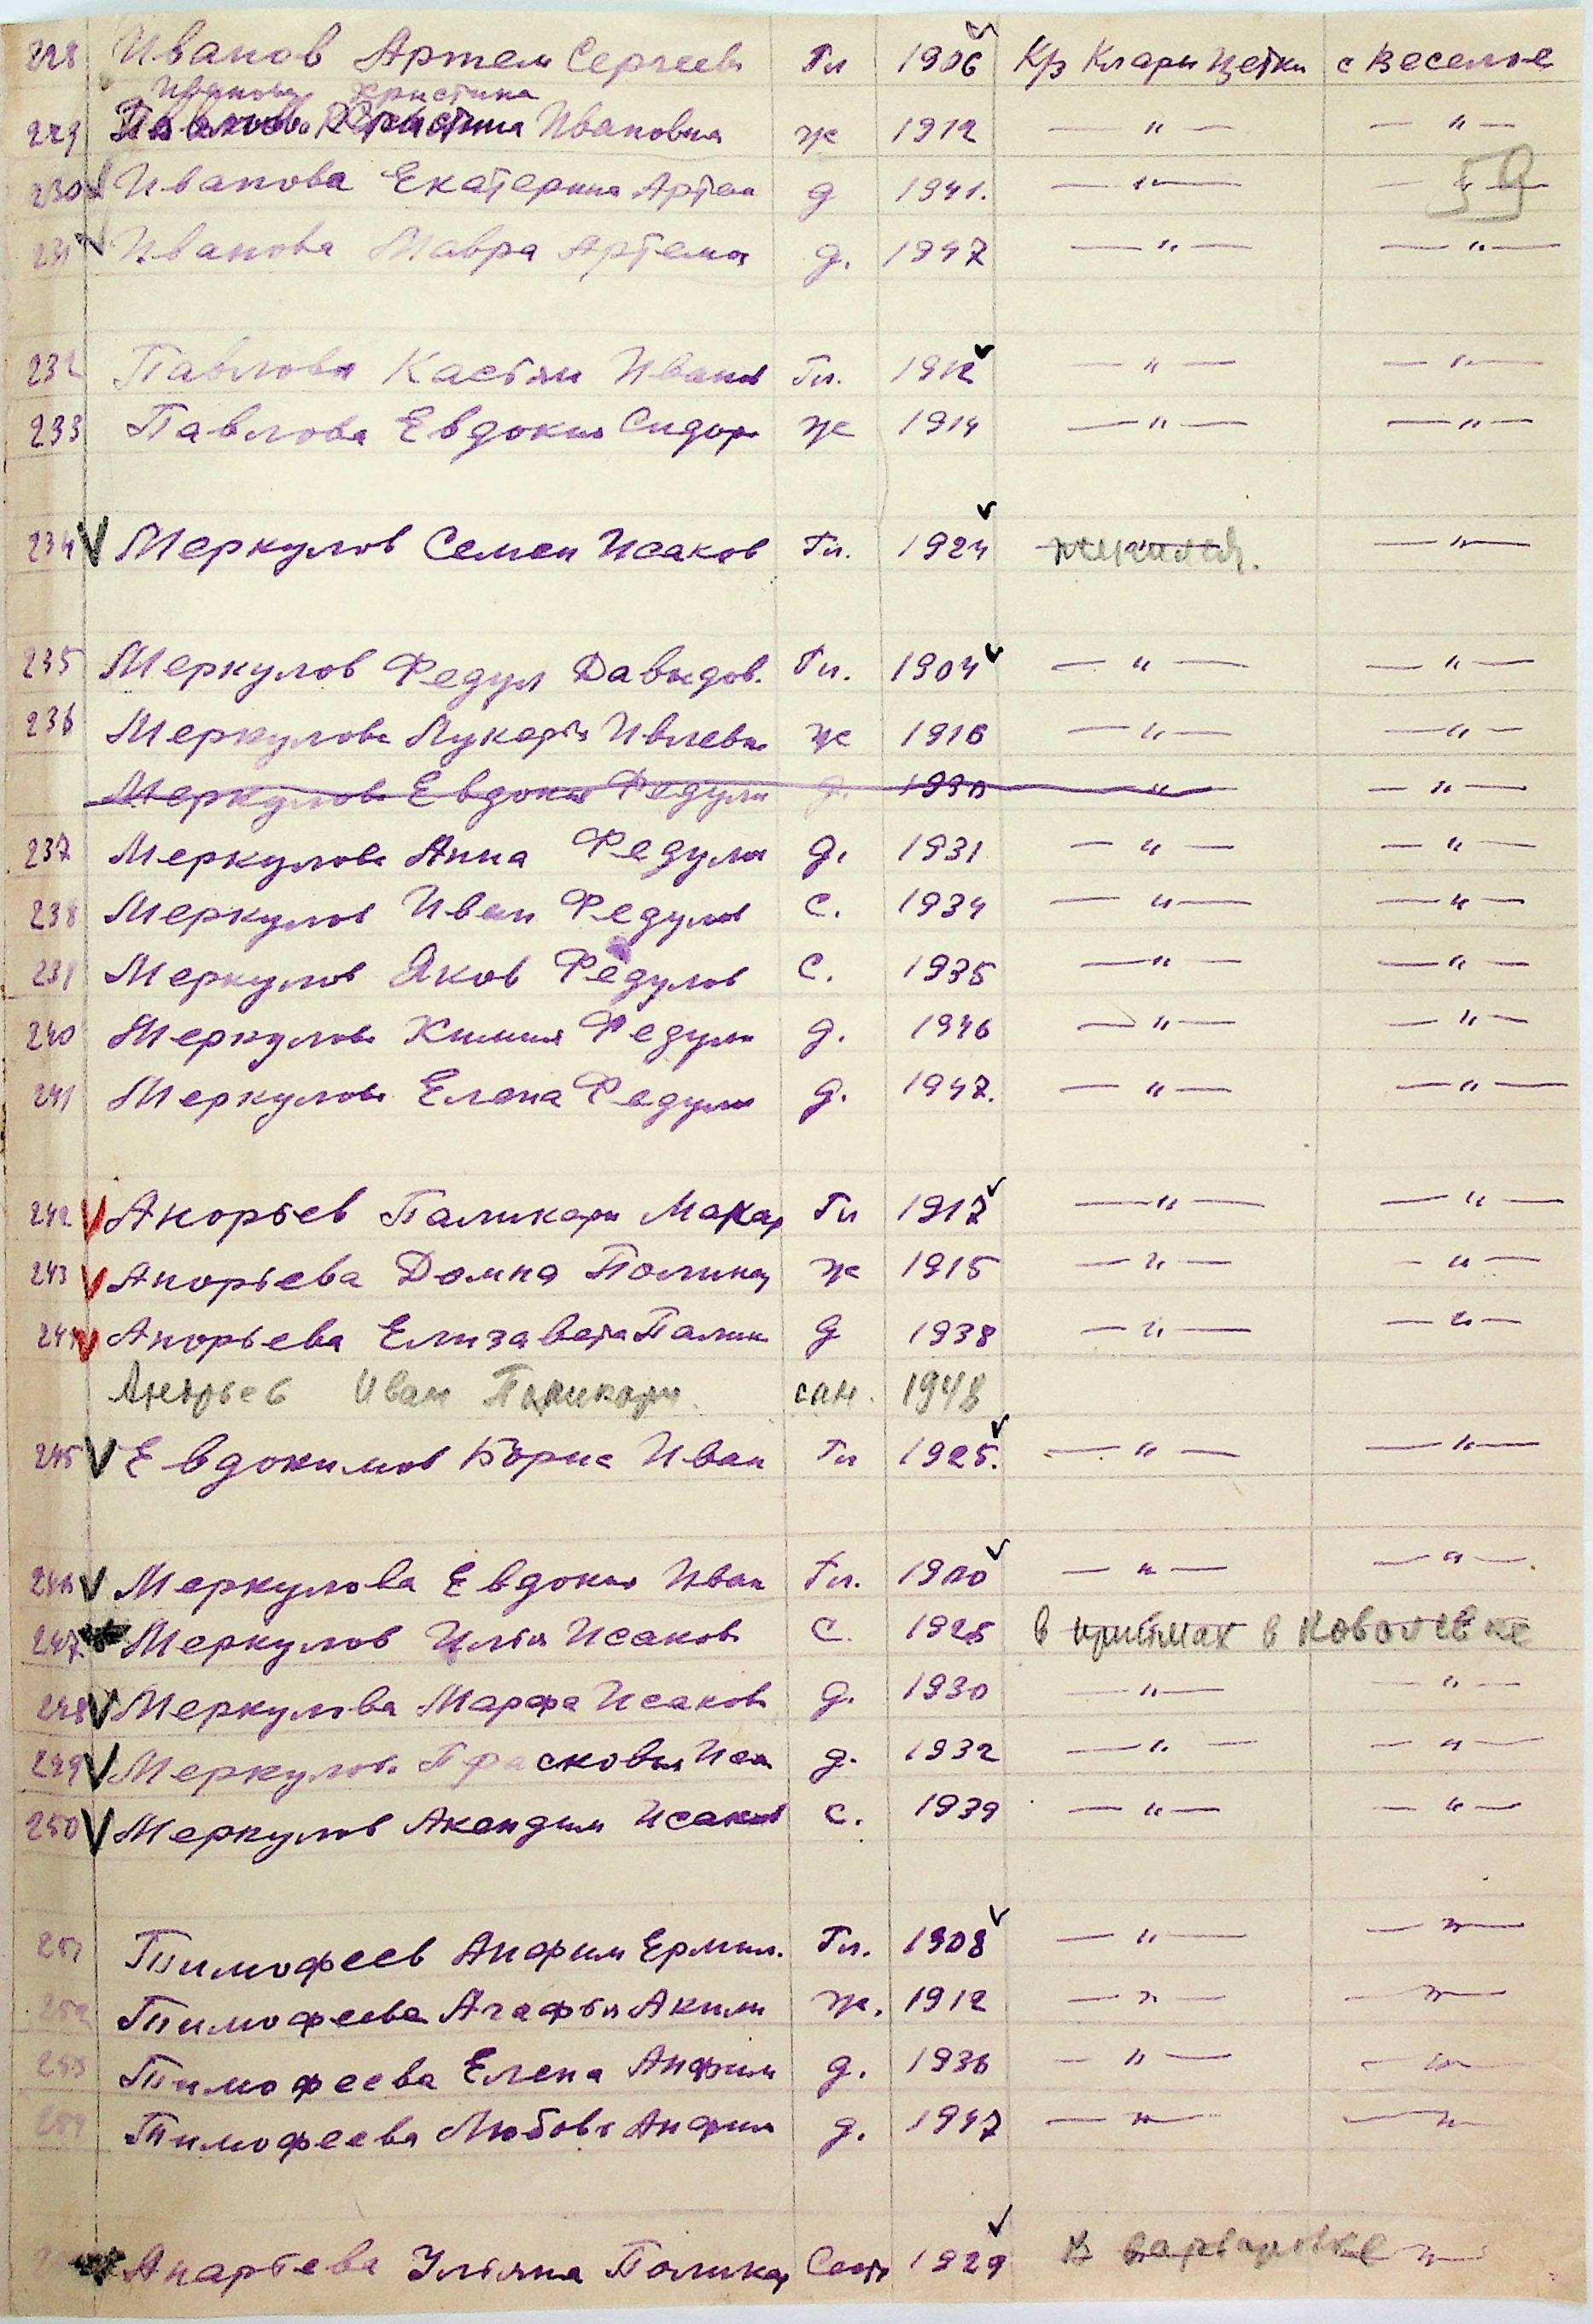 228 Иванов Артем Сергеев Гл 1906 Кр Клары Цеткин с Веселое
Иванова Христина
229 Ивановна ж 1912 — " — — " —
230 Иванова Екатерина Артем д 1941. — " — — " —
59
231 Иванова Мавра Артемов д. 1947 — " — — " —
232 Павлов Кастян Иванов Гл. 1912 — " — — " —
233 Павлова Евдокия Сидор ж 1914 — " — — " —
234 Меркулов Семен Исаков Гл. 1924 — " —
235 Меркулов Федул Давыдов. Гл. 1904 — " — — " —
236 Меркулова Лукерья Ивлевна ж 1916 — " — — " —
Меркулова Евдокия Федули д. 1930 — " — — " —
237 Меркулова Анна Федулов д. 1931 — " — — " —
238 Меркулов Иван Федулов с. 1934 — " — — " —
239 Меркулов Яков Федулов с. 1935 — " — — " —
240 Меркулова Федули д. 1946 — " — — " —
241 Меркулова Елена Федули д. 1947. — " — — " —
242 Анорьев Паликарп Макар Гл 1917 — " — — " —
243 Анорьева Домна Полика ж 1915 — " — — " —
244 Анорьева Елизавета Палик д 1938 — " — — " —
Анорьев Иван Паликарп. сын. 1948
245 Евдокимов Борис Иван Гл 1925. — " — — " —
246 Меркулова Евдокия Иван Гл. 1900 — " — — " —
247 Меркулов Илья Исаков с. 1928 в приймах в Коволевке
248 Меркулова Марфа Исаков д. 1930 — " — — " —
249 Меркулова Прасковья Иса д. 1932 — " — — " —
250 Меркулов Акендин Исаков с. 1939 — " — — " —
251 Тимофеев Анфим Ермил. Гл. 1908 — " — — " —
252 Тимофеева Агафья Аким ж. 1912 — " — — " —
253 Тимофеева Елена Анфим д. 1936 — " — — " —
254 Тимофеева Любовь Анфим д. 1947 — " — — " —
Анарьева Ульяна Полика Сест 1929 в Варваровке — " —